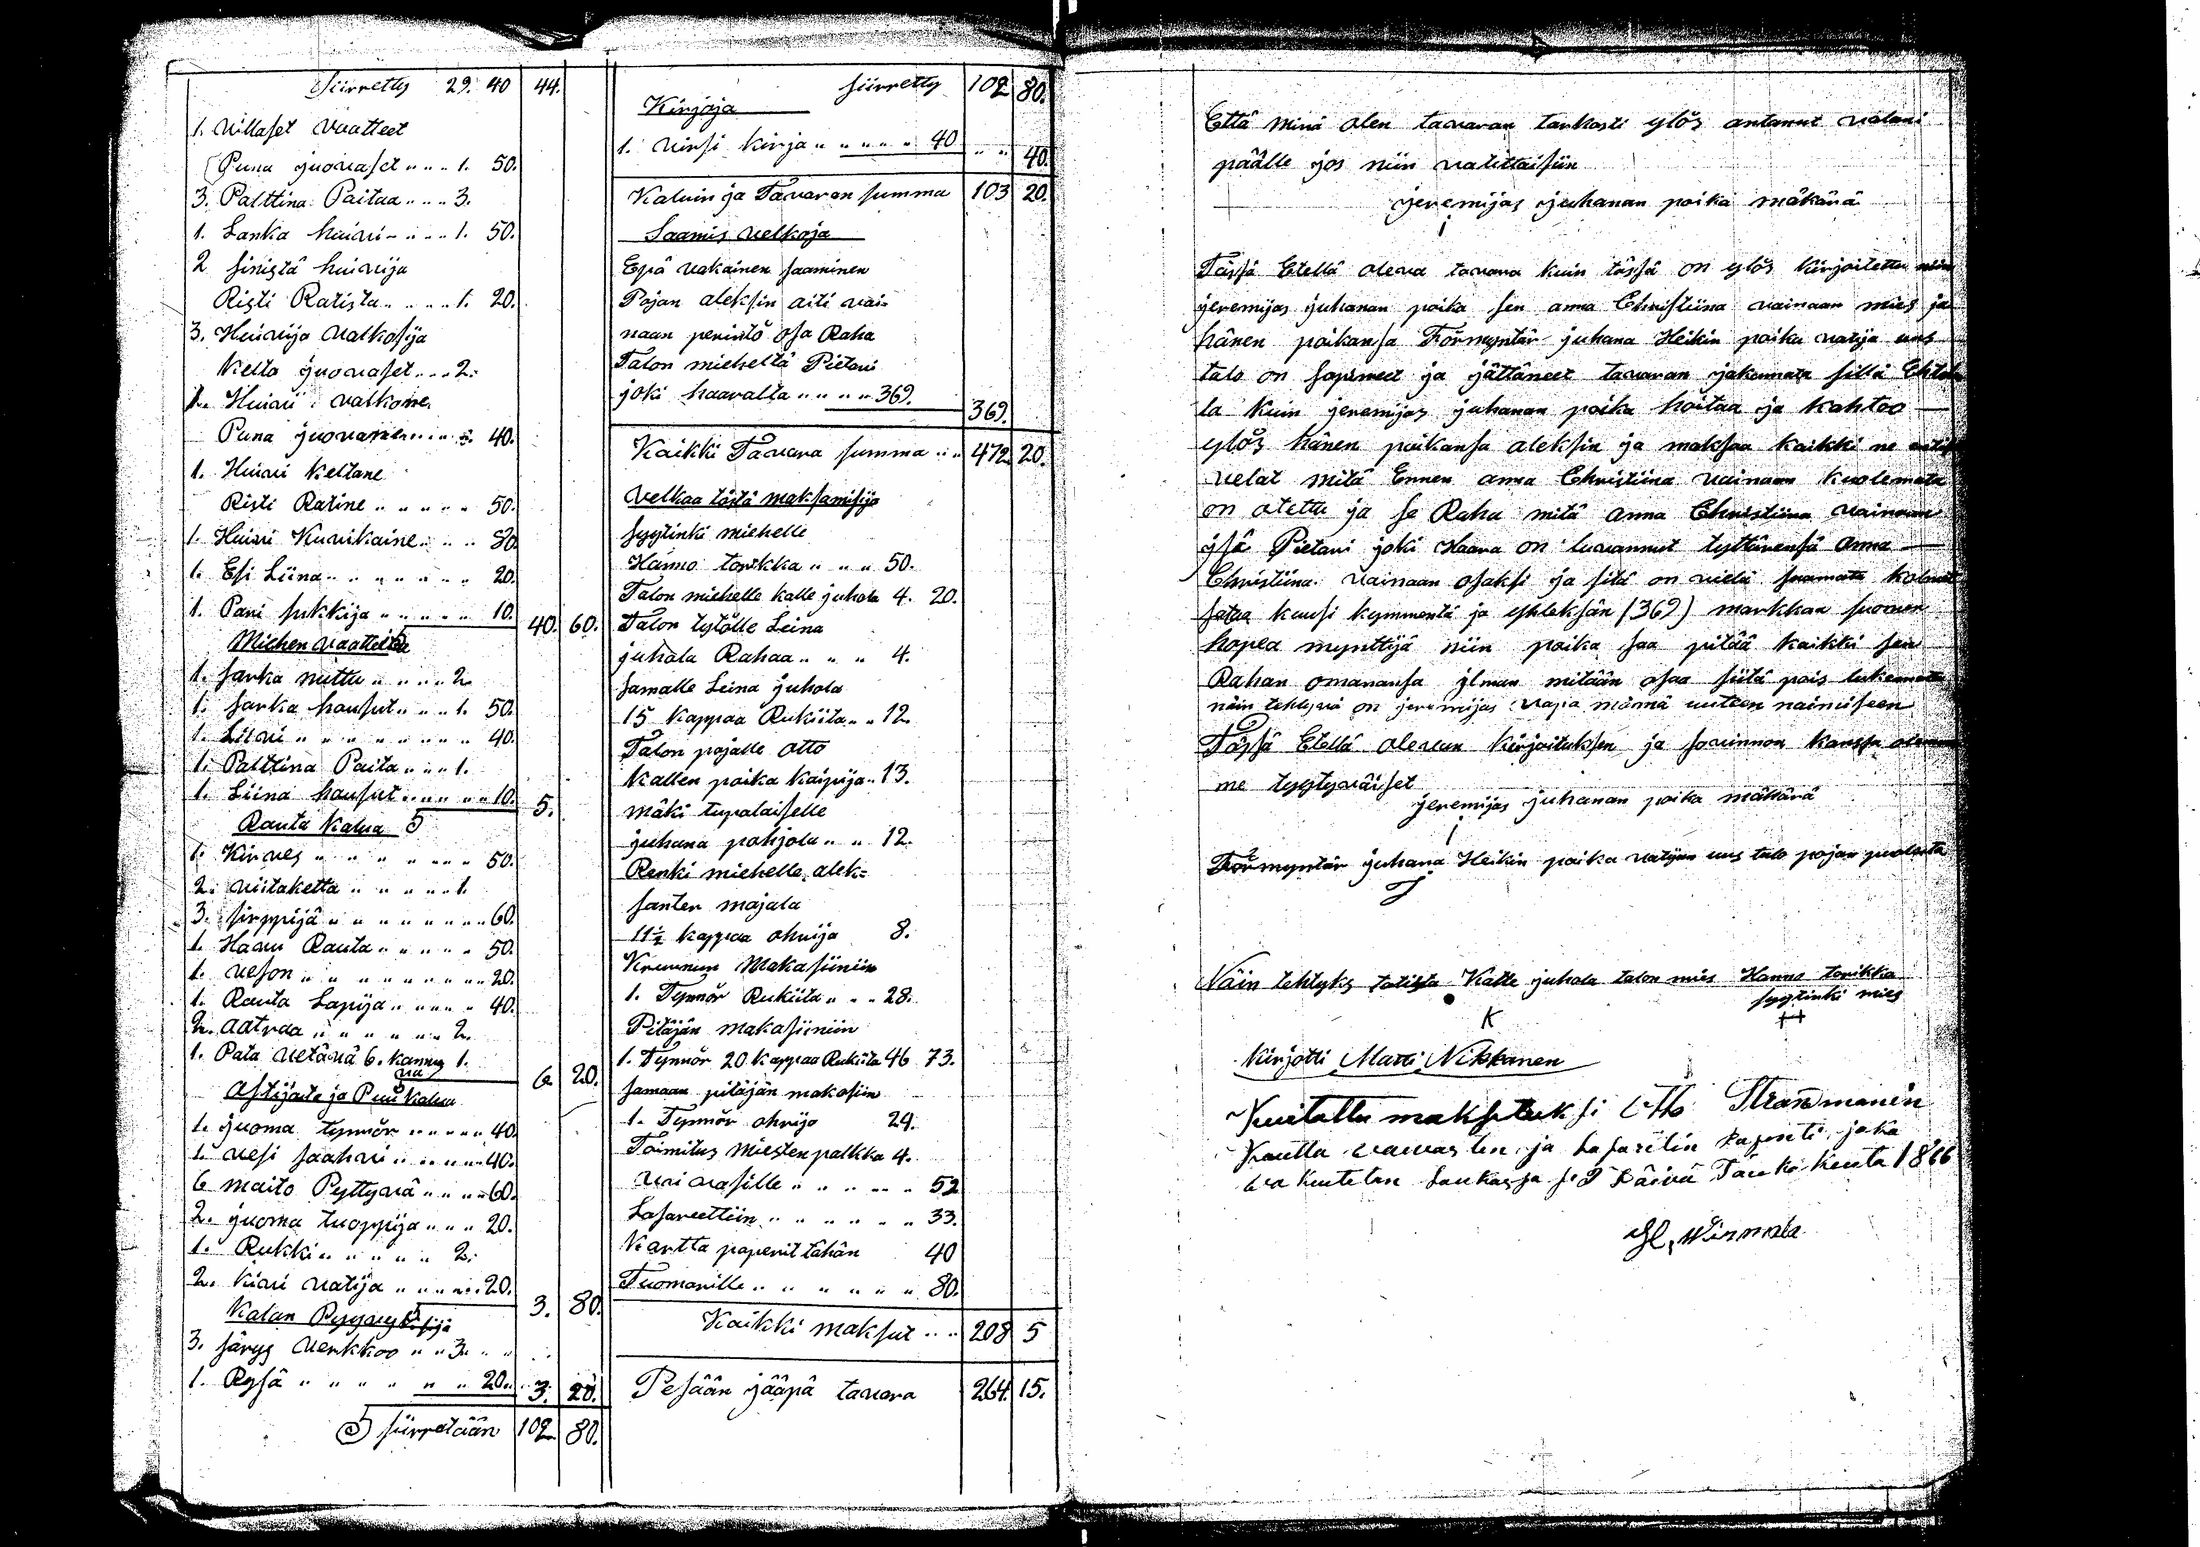 Siirretty 29. 40 44.
1. villaset vaatteet
Puna juovaset „ „ „ 1. 50.
3. Palttina Paitaa „ „ „ 3.
1. Lanka huivi „ „ „ 1. 50.
2 sinistä huivija
Risti Ratista „ „ „ 1. 20.
3. Huivija valkosija
Kelta juovaset „ „ 2.
1. Huivi valkone
Puna juovanen „ „ 40.
1. Huivi keltane
Risti Ratine „ „ „ „ „ 50.
1. Huivi Kuvikaine „ „ 80
1. Esi Liina „ „ „ „ „ „ 20.
1. Pari sukkija „ „ „ „ „ 10. 40. 60.
Miehen vaatteita
1. sarka nuttu „ „ „ „ 2.
1. sarka housut „ „ „ 1. 50.
1. Liivi „ „ „ „ „ „ „ 40.
1. Palttina Paita „ „ „ 1.
1. Liina housut „ „ „ „ 10. 5.
Rauta kalua
1. Kirves „ „ „ „ „ „ 50.
2. viitaketta „ „ „ „ „ 1.
3. sirppijä „ „ „ „ „ „ „ 60.
1. Haavi Rauta „ „ „ „ „ 50.
1. veson „ „ „ „ „ „ „ 20.
1. Rauta Lapija „ „ „ „ 40.
2. aatraa „ „ „ „ „ „ 2.
1. Pata vetävä 6. kannua 1. 6. 20.
Astijoita ja Puu kalua
1. juoma tynnör „ „ „ „ „ 40.
1. vesi saahvi „ „ „ „ „ 40.
6 maito Pyttyvä „ „ „ „ 60.
2. juoma tuoppija „ „ „ 20.
1. Rukki „ „ „ „ „ 2.
2. kivi vatija „ „ „ „ „ 20. 3. 80.
Kalan Pyyvyksijä
3. särys verkkoo „ „ 3. „ „
1. Rysä „ „ „ „ „ „ 20. 3. 20.
siirretään 102 80.
siirretty 102 80.
Kirjoja
1. virsi kirja „ „ „ „ „ 40 „ „ 40.
Kaluin ja Tavaran summa 103 20.
Saamis velkoja
Epä vakainen saaminen
Pojan aleksin äiti vai-
naan perintö osa Raha
Talon mieheltä Pietari
joki haaralta „ „ „ „ 369. 369.
Kaikki Tavara summa „ „ 472 20.
velkaa töstä maksamisija
syytinki miehelle
Hanno torikka „ „ „ 50.
Talon miehelle kalle juhola 4. 20.
Talon tytölle Leina
juhola Rahaa „ „ „ 4.
samalle Leina juhola
15 kappaa Rukiita „ „ 12.
Talon pojalle otto
kallen poika kaipija „ 13.
mäki tupalaiselle
juhana pohjola „ „ 12.
Renki miehelle alek=
santer majala
11½ kappaa ohrija 8.
Kruunun Makasiiniin
1. Tynnör Rukiita „ „ „ 28.
Pitäjän makasiiniin
1. Tynnör 20 kappaa Rukiita 46 73.
samaan pitäjän makasiin
1. Tynnör ohrijo 24.
Toimitus Miesten palkka 4.
vaivasille „ „ „ „ „ 52
Lasareettiin „ „ „ „ „ „ 33.
Kartta paperit tähän 40
Tuomarille „ „ „ „ „ „ „ 80.
Kaikki maksut „ „ 208 5
Pesään jääpä tavara 264 15.
Että minä olen tavaran tarkasti ylös antanut valani
päälle jos niin vaadittaisiin
jeremijas juhanan poika mäkärä
Tässä Etellä oleva tavara kuin tässä on ylös kirjoitettu niin
jeremijas juhanan poika sen anna Christiina vainaan mies ja
hänen poikansa Förmyntär juhana Heikin poika vatija uus
talo on sopineet ja jättäneet tavaran jakamata sillä Ehtol
la kuin jeremijas juhanan poika hoitaa ja kahtoo
ylös hänen poikansa aleksin ja maksaa kaikki ne
velat mitä Ennen anna Christiina vainaan kuolemata
on otettu ja se Raha mitä anna Christiina vainaan
isä Pietari joki Haara on luvannut tyttärensä anna
Christiina vainaan osaksi ja sitä on vielä saamata kolmet
sataa kuusi kymmentä ja yhteksän (369) markkaa suomen
hopea mynttijä niin poika saa pitää kaikki sen
Rahan omanansa ilman mitään osaa siitä pois lukematta
näin tehtynä on jeremijas vapa männä uutteen naimiseen
Tässä Etellä olevan kirjoituksen ja sovinnon kanssa olemm
me tyytyväiset
jeremijas juhanan poika mäkärä
Förmyntär juhana Heikin poika vatijan uus talo pojan puolesta
Näin tehtyks totista Kalle juhola talon mies Hanno torikka
syytinki mies
K
Kirjotti Matti Nikkanen
Kuitattu maksetuksi Otto Strandmanin
Kautta vaivasten ja Lasaretin
kuitetan Laukassa päivä Tamikikuuta 1866